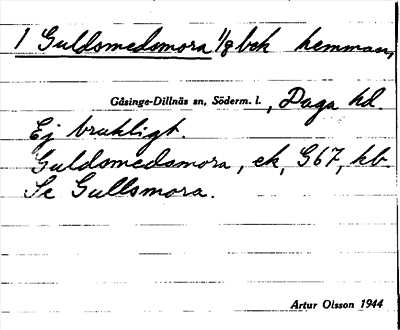 1 Guldsmedsmora 1/8 bek hemman,
Gåsinge-Dillnäs sn, Söderm. l., Daga hd.
Ej brukligt.
Guldsmedsmora, ek, G67, kb.
Se Gullsmora.
Artur Olsson 1944